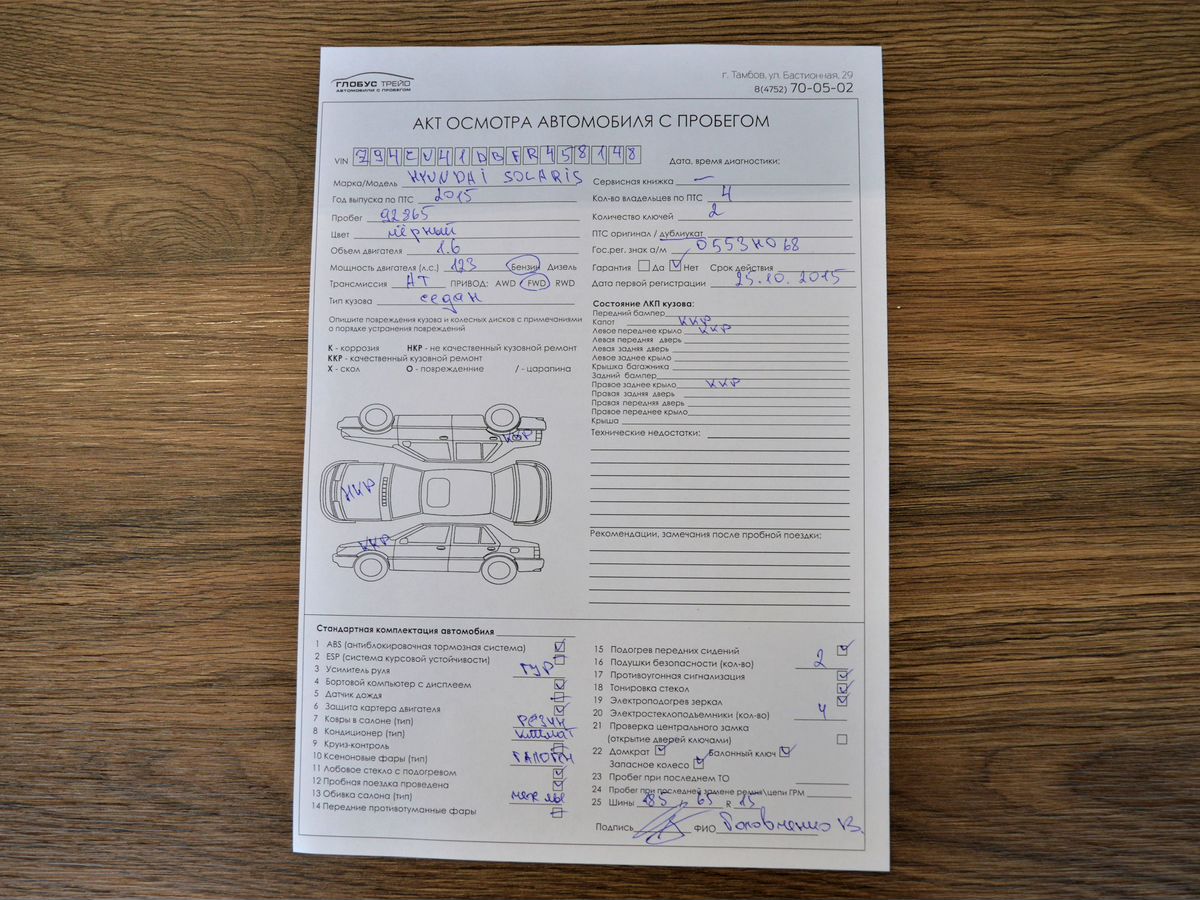 ГЛОБУС ТРЕЙД
АВТОМОБИЛИ С ПРОБЕГОМ
г. Тамбов, ул. Бастионная, 29
8(4752) 70-05-02
АКТ ОСМОТРА АВТОМОБИЛЯ С ПРОБЕГОМ
VIN Z94CU41DBFR458148
Дата, время диагностики:
Марка/Модель HYUNDAI SOLARIS
Год выпуска по ПТС 2015
Пробег 92865
Цвет чёрный
Объем двигателя 1.6
Мощность двигателя (л.с.) 123 Бензин Дизель
Трансмиссия АТ ПРИВОД: AWD FWD RWD
Тип кузова седан
Опишите повреждения кузова и колесных дисков с примечаниями
о порядке устранения повреждений
К - коррозия НКР - не качественный кузовной ремонт
ККР - качественный кузовной ремонт
Х - скол О - поврежденние / - царапина
Сервисная книжка –
Кол-во владельцев по ПТС 4
Количество ключей 2
ПТС оригинал / дубликат
Гос.рег. знак а/м О553НО68
Гарантия Да Нет Срок действия
Дата первой регистрации 25.10.2015
Состояние ЛКП кузова:
Передний бампер
Капот ККР
Левое переднее крыло ККР
Левая передняя дверь
Левая задняя дверь
Левое заднее крыло
Крышка багажника
Задний бампер
Правое заднее крыло ККР
Правая задняя дверь
Правая передняя дверь
Правое переднее крыло
Крыша
Технические недостатки:
Рекомендации, замечания после пробной поездки:
ККР
НКР
ККР
Стандартная комплектация автомобиля
1 ABS (антиблокировочная тормозная система)
2 ESP (система курсовой устойчивости)
3 Усилитель руля ГУР
4 Бортовой компьютер с дисплеем
5 Датчик дождя
6 Защита картера двигателя
7 Ковры в салоне (тип) резин
8 Кондиционер (тип) климат
9 Круиз-контроль
10 Ксеноновые фары (тип) галоген
11 Лобовое стекло с подогревом
12 Пробная поездка проведена
13 Обивка салона (тип)
14 Передние противотуманные фары
15 Подогрев передних сидений
16 Подушки безопасности (кол-во) 2
17 Противоугонная сигнализация
18 Тонировка стекол
19 Электроподогрев зеркал
20 Электростеклоподъемники (кол-во) 4
21 Проверка центрального замка
(открытие дверей ключами)
22 Домкрат Балонный ключ
Запасное колесо
23 Пробег при последнем ТО
24 Пробег при последней замене ремня\цепи ГРМ
25 Шины 185 65 R 15
Подпись ФИО Головченко В.